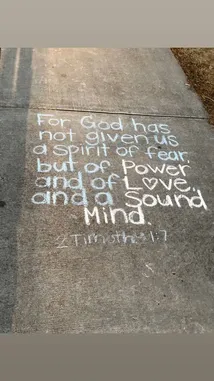 For God has
not given us
a spirit of fear,
but of Power
and of L♡ve,
and a Sound
Mind.
2 Timothy 1:7